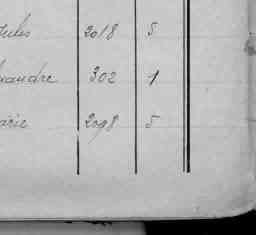 Jules 2018 5
exandre 302 1
arie 2098 5